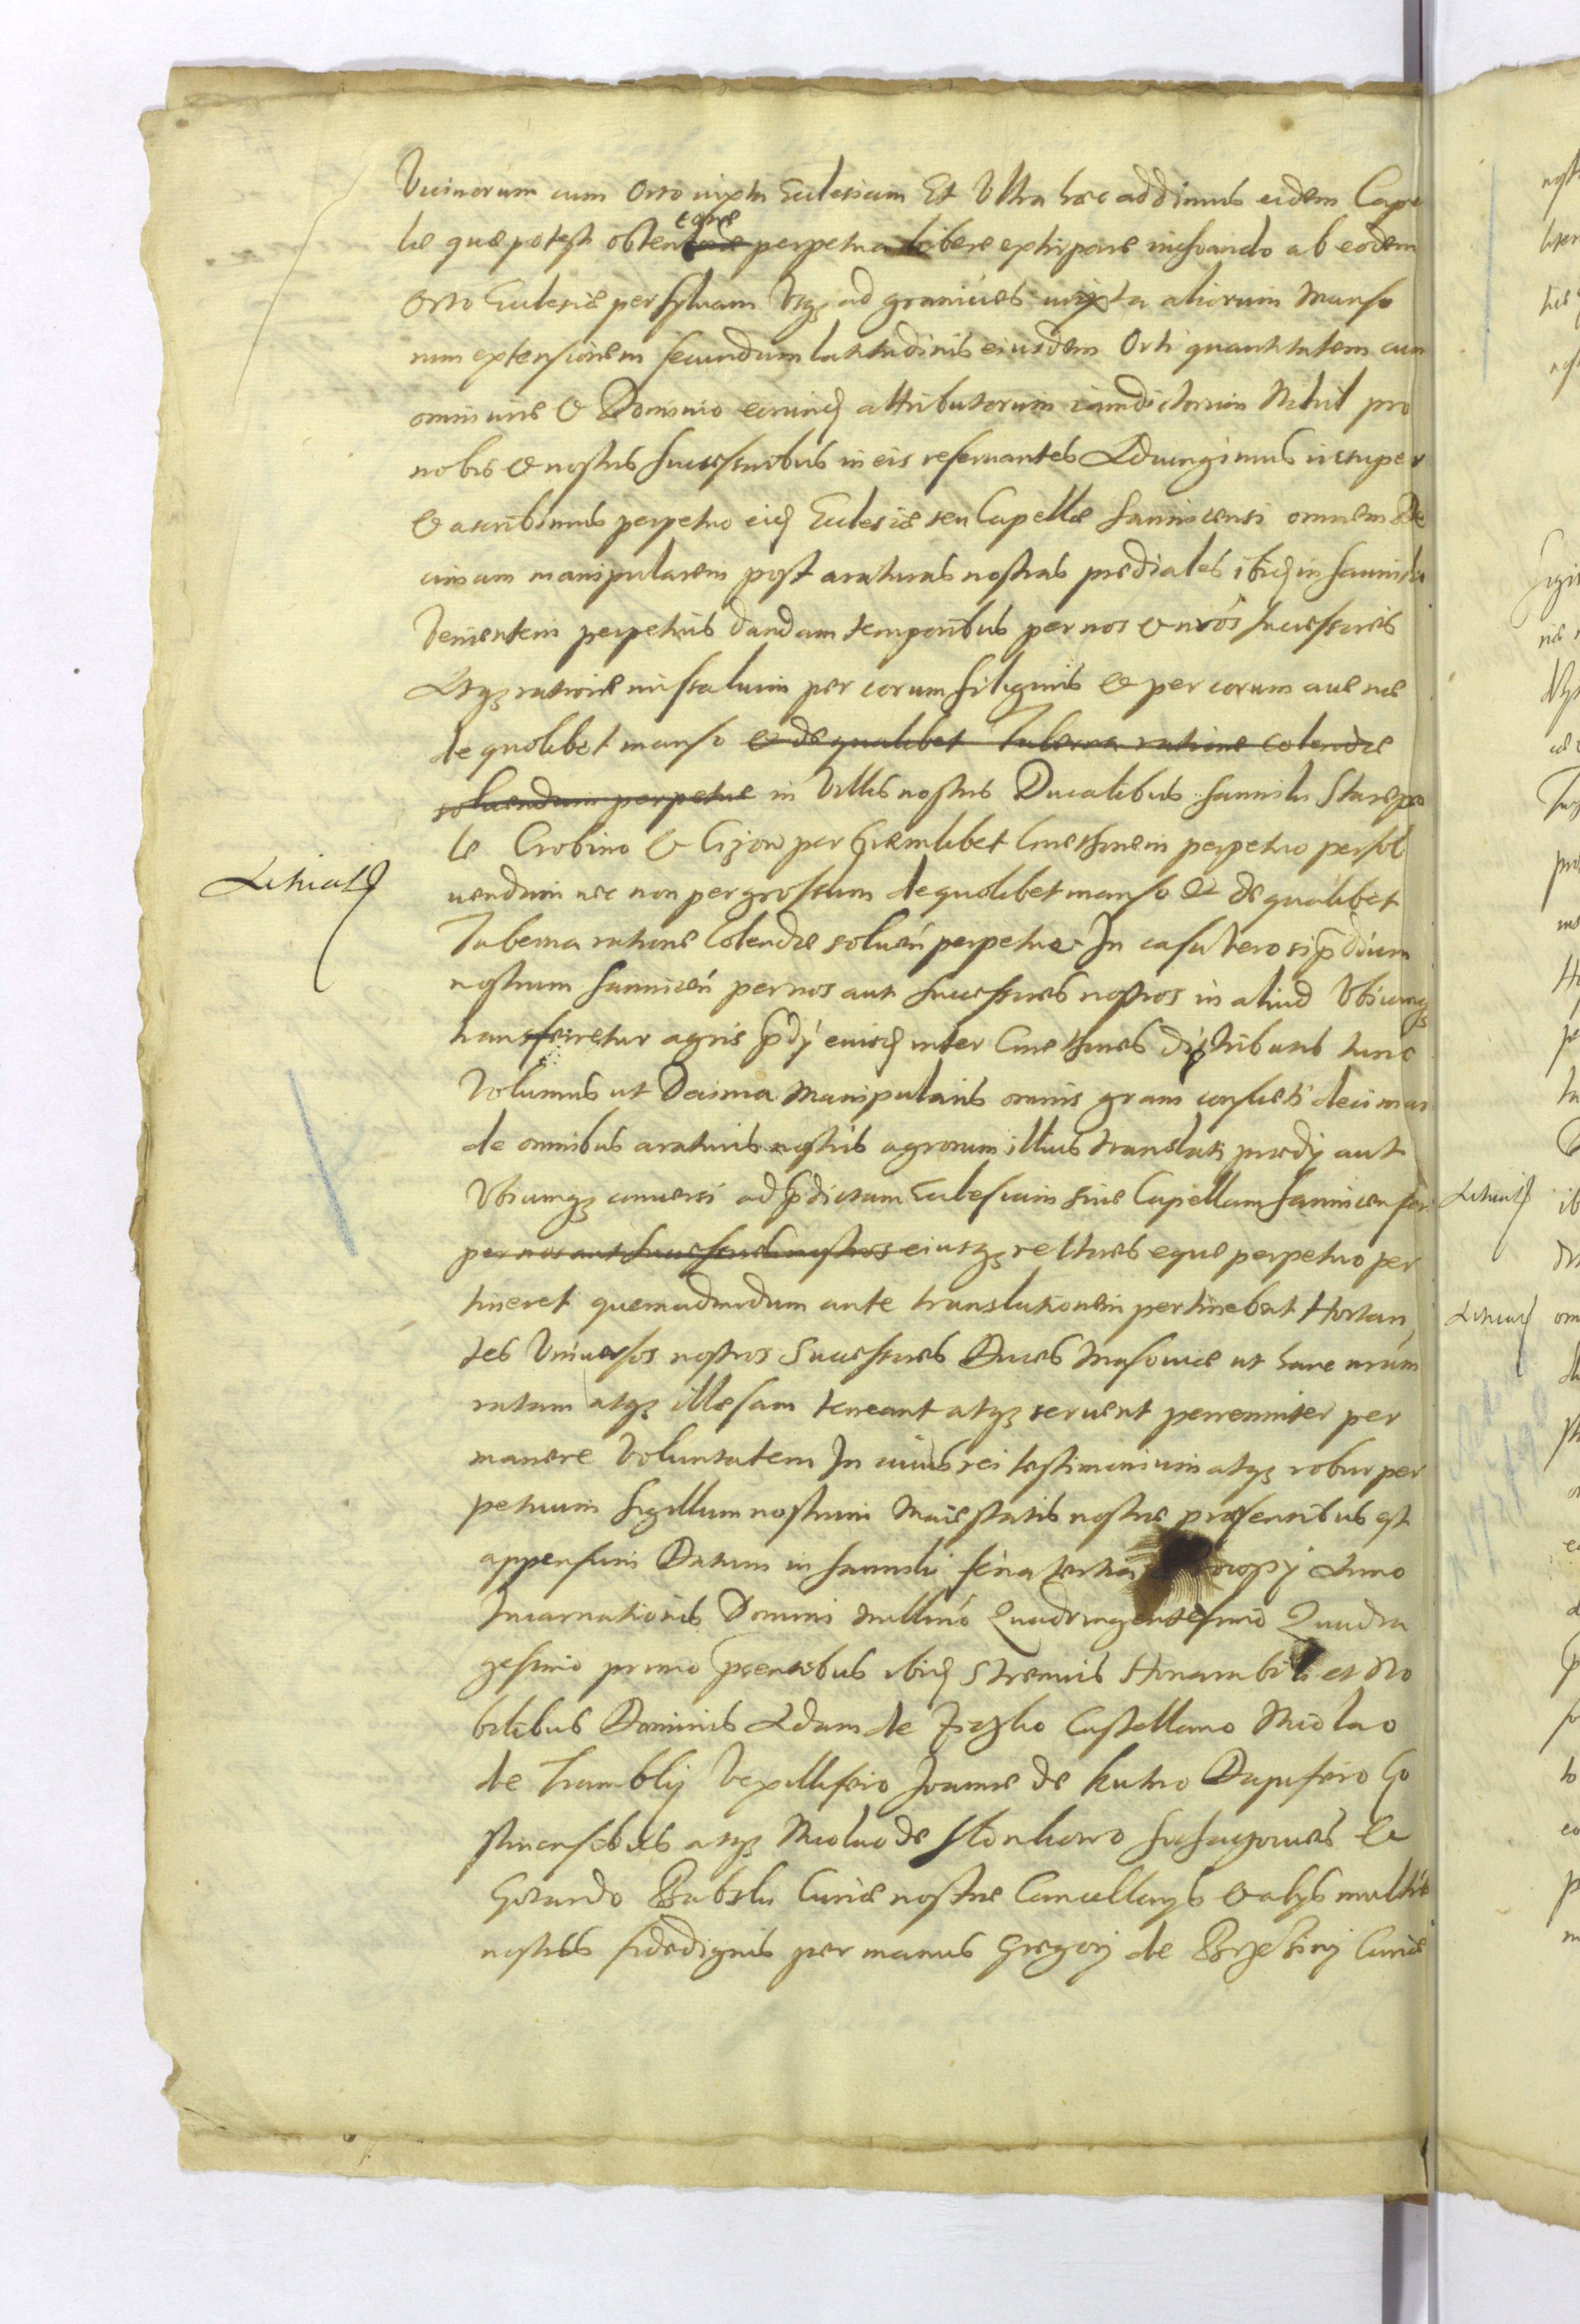 Vicinorum cum Orto iuxta Ecclesiam Et Ultra hæc addimus eidem Cape
læ quæ potest obten tione perpetua libere extirpare inchoando ab eodem
Orto Ecclesiæ per syluam Vsqȝ ad granicies iuxta aliorum Manso
rum extensionem secundum latitudinis eiusdem Orti quantitatem cum
omni iure & Dominio eorund attributorum iamdictorum Nihil pro
nobis & nostris successoribus in eis reseruantes Adiungimus insuper
& ascribimus perpetuo eid Ecclesiæ seu Capellæ Sannicensi omnem De
cimam manipularem post araturas nostras prædiales ibid in Sanniki
Venientem perpetuis dandam temporibus per nos & nros successores
Atqȝ ratione missalium per corum siliginis & per corum auenæ
de quolibet manso & de qualibet Taberna ratione colendæ
soluendum perpetue in Villis nostris Ducalibus Sanniki Starepo
le Crobino & Cizow per quemlibet Cmethonem perpetuo persol
uendum nec non per grossum de quolibet manso & de qualibet
Taberna ratione Colendæ soluen perpetue. In casu Vero si pdium
nostrum Sannicen per nos aut successores nostros in aliud Vbicunqȝ
transferretur agris pdy eiusd inter Cmethones distributis tunc
Volumus ut Decima Manipularis omnis grani consueti decimari
de omnibus araturis nostris agrorum illius translati prædij aut
Vbicunqȝ conuersi ad pdictam Ecclesiam siue Capellam Sannicensem
per nos aut successores nostros eiusqȝ rectores eque perpetuo per
tineret quemadmodum ante translationem pertinebat Hortan
tes Vniuersos nostros Successores Duces Masouiæ ut hanc nram
ratam atqȝ illæsam teneant atqȝ seruent perenniter per
manere Voluntatem In cuius rei testimonium atqȝ robur per
petuum Sigillum nostrum Maiestatis nostræ præsentibus est
appensum Datum in Sanniki feria tertia Anno
Incarnationis Domini millimo Quadringentesimo Quadra
gesimo primo psentibus ibid Strenuis Honorabili et No
bilibus Dominis Adam de Castellano Nicolao
de Trambky Vexillifero Joanne de Kutno Dapifero Go
stinensibus atqȝ Nicolao de &
Gotardo Babsky Curiæ nostræ Cancellarys & alys multis
nostris fidedignis per manus Gregory de Curiæ